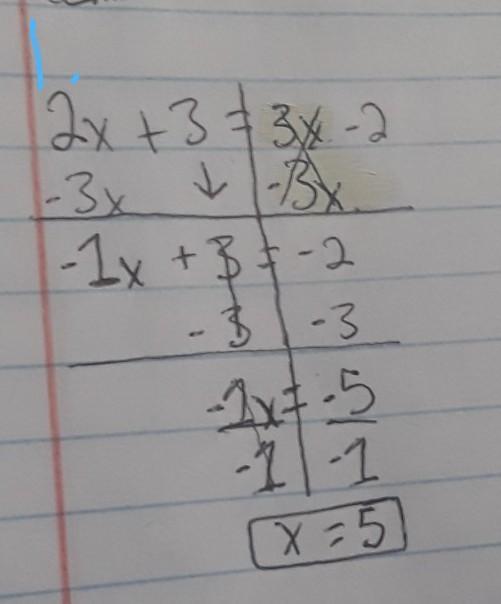 1.
2x + 3 = 3x - 2
-3x ↓ -3x
-1x + 3 = -2
- 3 -3
-1x = -5
-1 -1
x = 5